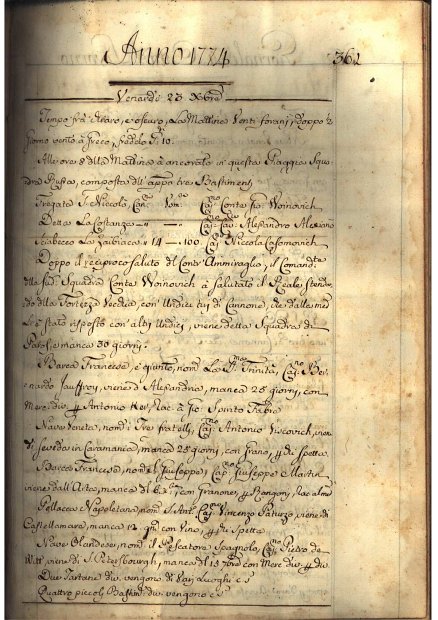 Anno 1774
362
Venerdì 23 Xbre
Tempo frà chiaro, e oscuro, La Mattina Venti forani, e doppo
giorno vento à Greco, freddo 10.
Alle ore 8 della Mattina à ancorato in questa Piaggia Squa
dra Russa, composta di appa tre Bastimenti,
Fregata S. Niccolò, Cane Cap.no Conte Gio: Woinovich
Detta La Costanza Cap.no Cav. Alessandro Alexiano
Sciabecco La 14 100 Cap.no Niccola Casomovich
Doppo il reciproco saluto di Contr'Ammiraglio, il Comand.te
della sud.a Squadra Conte Woinovich à salutato il Reale Stendar
do della Fortezza Vecchia, con Undici tiri di Cannone, che dalla med.
Le è stato risposto con altri Undici, viene detta Squadra di
Paros, e manca 30 giorni.
Barca Francese, è giunto, nom. La SS.ma Trinità, Cap.no Ber
nardo Jauffroy, viene d'Alessandria, manca 25 giorni, con
Merc. div. Antonio Rac. à Gio: Spirito Fabre
Nave Veneta, nom. i Tre Fratelli, Cap.no Antonio Viscovich, viene
di in Caramania, manca 28 giorni, con Grano, di Spetta.
Barca Francese, nom. S. Giuseppe, Cap.no Giuseppe Martin
viene dall'Arta, manca di con Granone, Rangoni, Rac.
Pollacca Napoletana, nom. S. Ant. Cap.no Vincenzo Paturzo, viene di
Castellamare, manca 12 gni con Vino, di Spetta
Nave Olandese, nom. il Pescatore Spagnolo, Cap.no Pietro de
Witt, viene di S. Petesbourgh, manca di 15 con Merc. div. div.
Due Tartane div. vengono di Vari Luoghi c.s
Quattro piccoli Bastim. div. vengono c.s